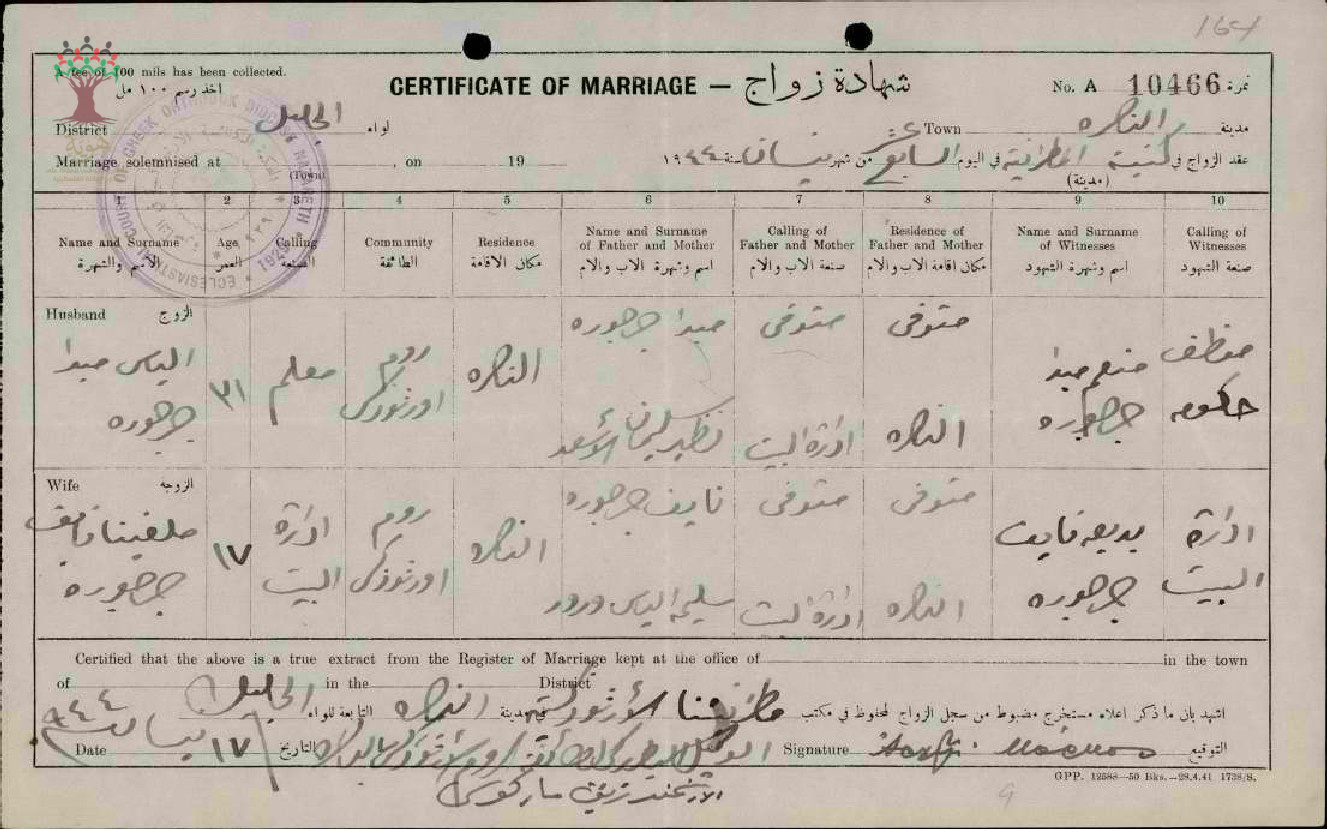 164
A fee of 100 mils has been collected.
اخذ رسم ١٠٠ مل
CERTIFICATE OF MARRIAGE — شهادة زواج
No. A 10466 نمرة
District الجليل لواء
Town الناصره مدينة
Marriage solemnised at , on 19
(Town)
عقد الزواج في كنيسة المطرانية في اليوم السابع عشر من شهر نيسان سنة ١٩٤٤
(مدينة)
1 2 3 4 5 6 7 8 9 10
Name and Surname
الاسم والشهرة
Age
العمر
Calling
الصنعة
Community
الطائفة
Residence
مكان الاقامة
Name and Surname of Father and Mother
اسم وشهرة الاب والام
Calling of Father and Mother
صنعة الاب والام
Residence of Father and Mother
مكان اقامة الاب والام
Name and Surname of Witnesses
اسم وشهرة الشهود
Calling of Witnesses
صنعة الشهود
Husband الزوج
الياس
جرجوره
٣١
معلم
روم
اورثوذكس
الناصره
جرجوره
سليمان الاسعد
متوفى
ادارة البيت
متوفى
الناصره
منعم
جرجوره
حكومه
Wife الزوجه
نايف
جرجوره
١٧
ادارة
البيت
روم
اورثوذكس
الناصره
نايف جرجوره
الياس ورور
متوفى
ادارة البيت
متوفى
الناصره
بديعه نايف
جرجوره
ادارة
البيت
Certified that the above is a true extract from the Register of Marriage kept at the office of in the town
of in the District
اشهد بان ما ذكر اعلاه مستخرج مضبوط من سجل الزواج المحفوظ في مكتب الأرثوذكسية في مدينة الناصره التابعة للواء الجليل
Date ١٧ نيسان ٩٤٤ التاريخ
Signature التوقيع
ماركوس
GPP. 19588—50 Bks.—28.4.41 1736/S.
9